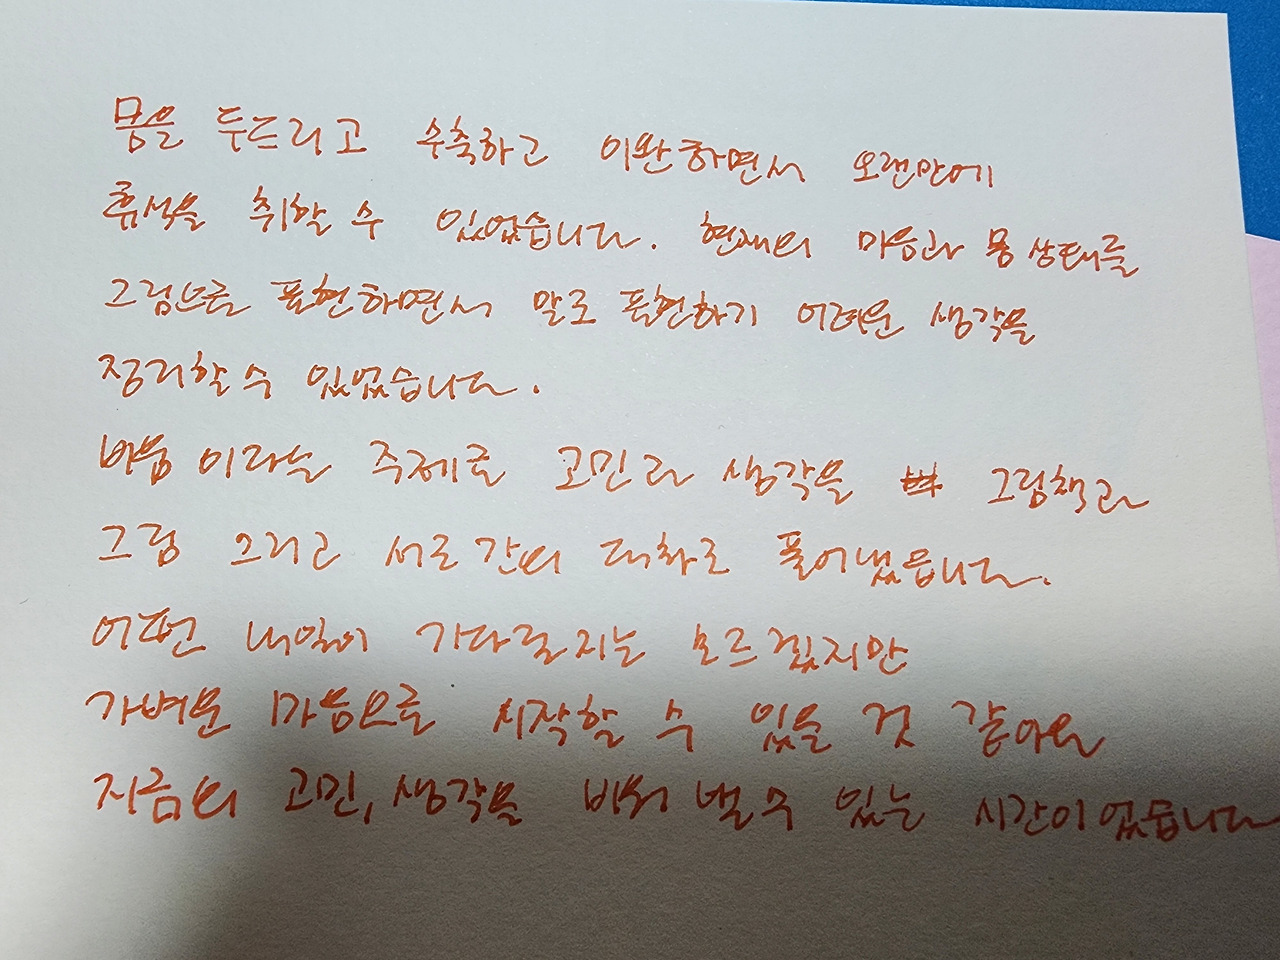 몸을 두드리고 수축하고 이완하면서 오랜만에
휴식을 취할 수 있었습니다. 현재의 마음과 몸 상태를
그림으로 표현하면서 말로 표현하기 어려운 생각을
정리할 수 있었습니다.
비움이라는 주제를 고민과 생각을 그림책과
그림 그리고 서로간의 대화로 풀어냈습니다.
어떤 내일이 기다릴지는 모르겠지만
가벼운 마음으로 시작할 수 있을 것 같아요
지금의 고민, 생각을 비워 낼 수 있는 시간이었습니다